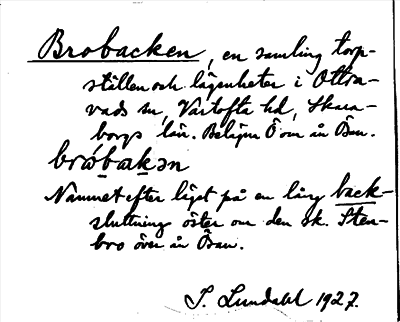 Brobacken, en samling torp-
ställen och lägenheter i Ottra-
vads sn, Vartofta hd, Skara-
borgs län. Belägna Ö om ån Ösan.
bróbakən
Namnet efter läget på en låg back-
sluttning öster om den sk. Sten-
bro över ån Ösan.
S. Lundahl 1927.